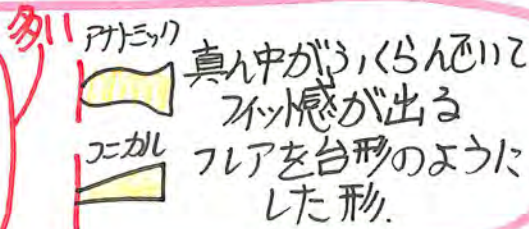 多い
アナトミック
真ん中がふくらんでいて
フィット感が出る
コニカル
フレアを台形のように
した形.